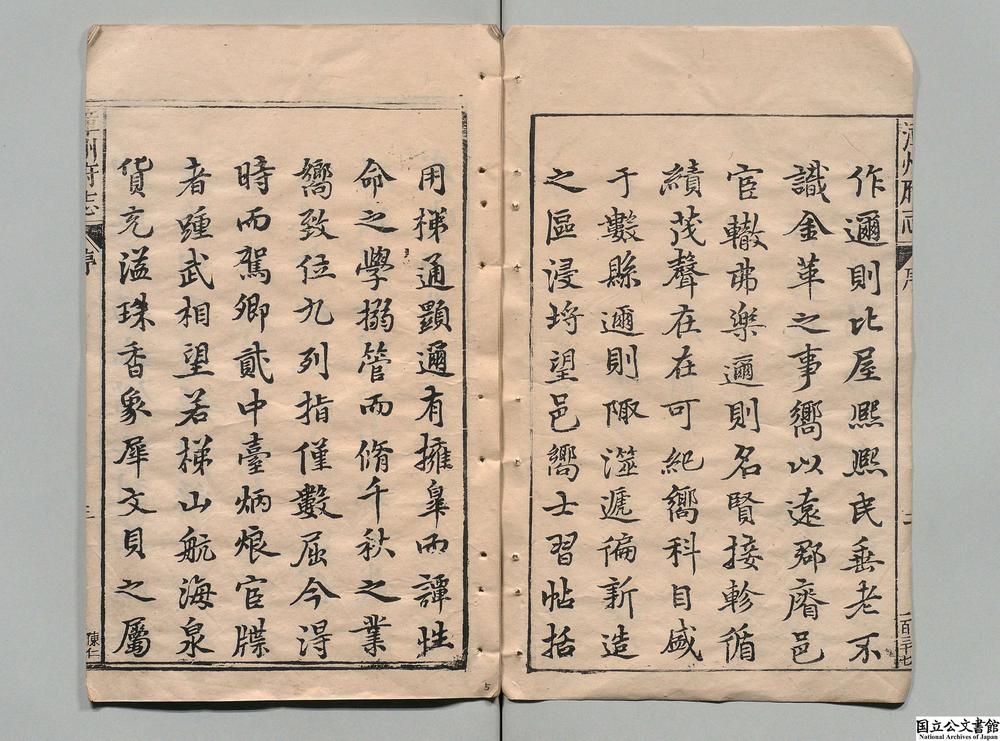 作邇則比屋熈熈民垂老不
識金革之事嚮以遠郡瘠邑
宦轍弗樂邇則名賢接軫循
績茂聲在在可紀嚮科目盛
于數縣邇則陬澨遞徧新造
之區浸埒望邑嚮士習帖括
用梯通顯邇有擁皐而譚性
命之學搦管而脩千秋之業
嚮致位九列指僅數屈今淂
時而駕卿貳中臺炳烺官牒
者踵武相望若梯山航海泉
貨充溢珠香象犀文貝之屬
漳州府志
序
二
漳州府志
序
三
陳仁
国立公文書館
National Archives of Japan